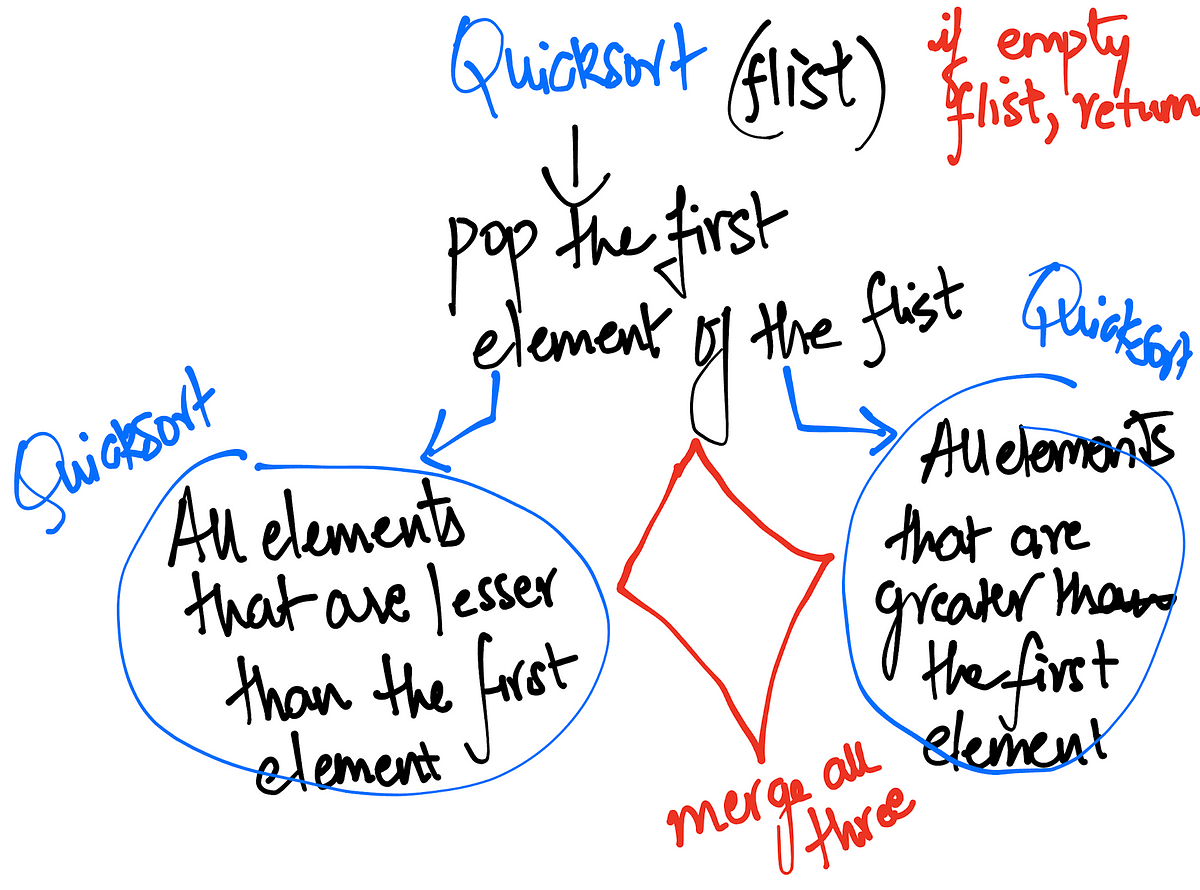 Quicksort (flist)
if empty
flist, return
pop the first
element of the flist
Quicksort
All elements
that are lesser
than the first
element
Quicksort
All elements
that are
greater than
the first
element
merge all
three